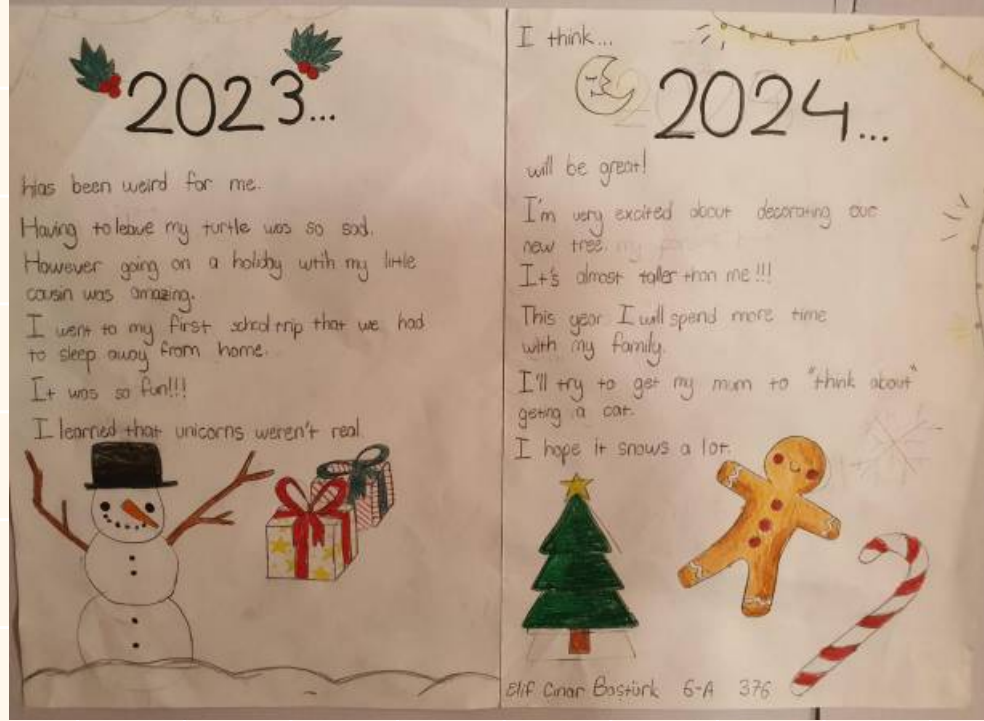 2023...
has been weird for me.
Having to leave my turtle was so sad.
However going on a holiday wtih my little
cousin was amazing.
I went to my first school trip that we had
to sleep away from home.
It was so fun!!!
I learned that unicorns weren't real.
I think...
2024...
will be great!
I'm very excited about decorating our
new tree.
It's almost taller than me!!!
This year I will spend more time
with my family.
I'll try to get my mum to "think about"
geting a cat.
I hope it snows a lot.
Elif Çınar Baştürk 6-A 376